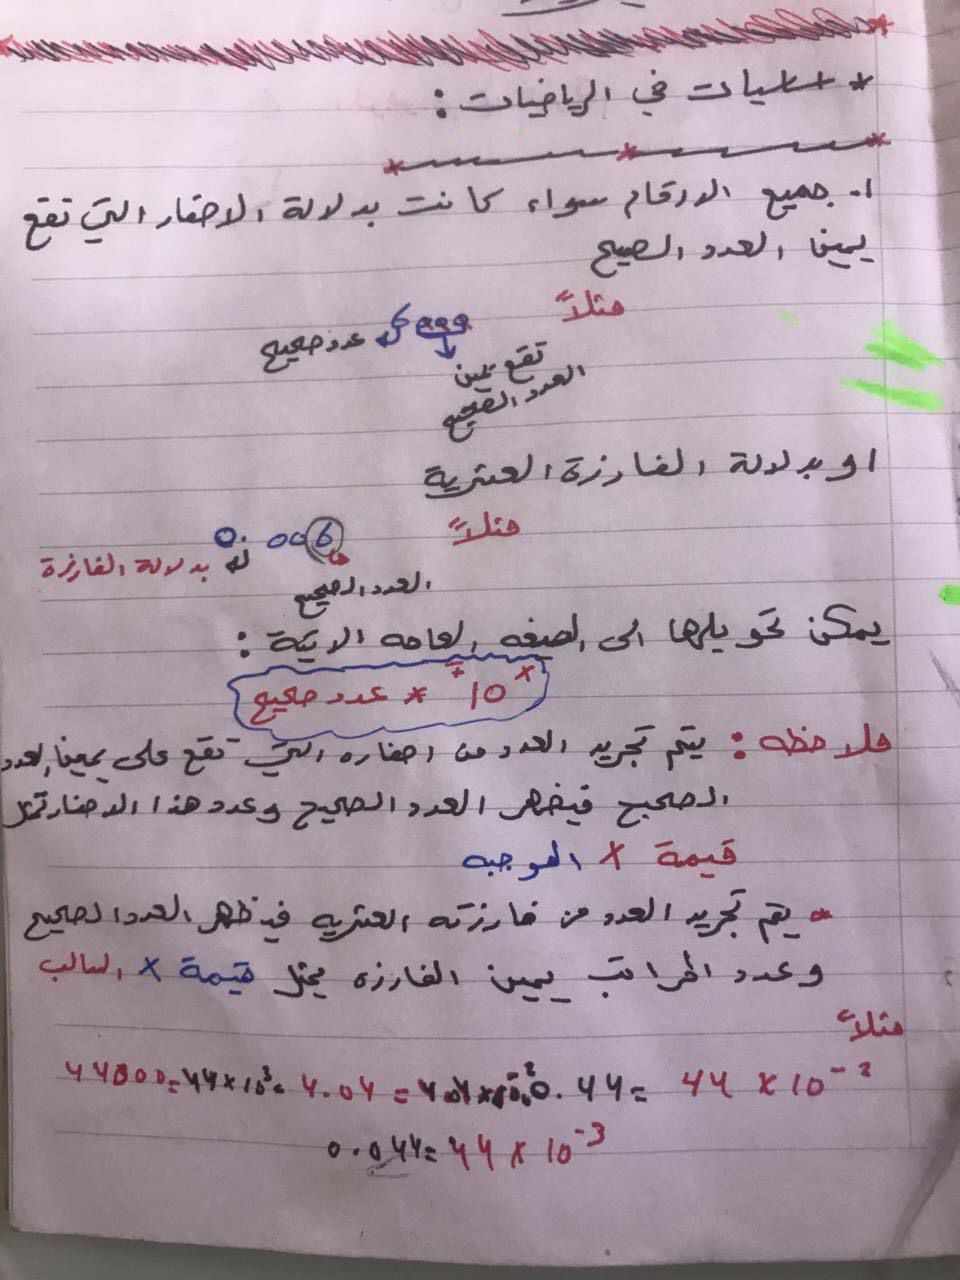 * اساسيات في الرياضيات :
١- جميع الارقام سواء كانت بدلالة الاصفار التي تقع
يمين العدد الصحيح
مثلاً
6000 عدد صحيح
تقع يمين
العدد الصحيح
او بدلالة الفارزة العشرية
مثلاً
0.006 بدلالة الفارزة
العدد الصحيح
يمكن تحويلها الى الصيغه العامه الاتية :
عدد صحيح * 10^±x
ملاحظه : يتم تجريد العدد من اصفاره التي تقع على يمين العدد
الصحيح فيضهر العدد الصحيح وعدد هذا الاصفار تمثل
قيمة x الموجبه
* يتم تجريد العدد من فارزته العشريه فيظهر العدد الصحيح
وعدد المراتب يمين الفارزه يمثل قيمة x السالب
مثلاً
44000=44×10³ 4.04= 0.44= 44×10⁻²
0.044=44×10⁻³